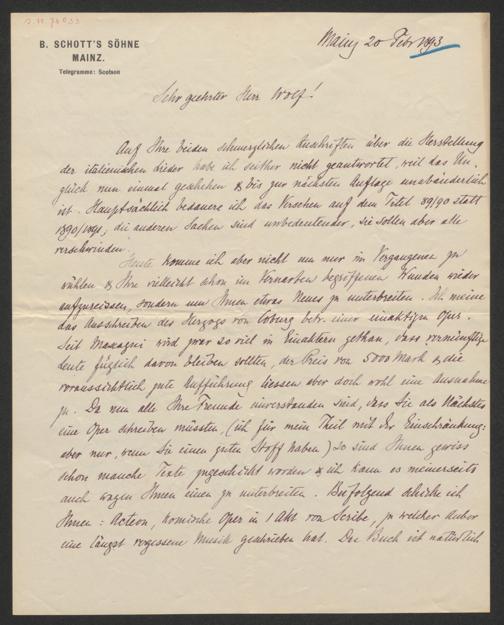 B. SCHOTT'S SÖHNE
MAINZ.
Telegramme: Scotson
Mainz 20 Febr 1893
Sehr geehrter Herr Wolf!
Auf Ihre beiden schmerzlichen Zuschriften über die Herstellung
der italienischen Lieder habe ich seither nicht geantwortet, weil das Un-
glück nun einmal geschehen & bis zur nächsten Auflage unabänderlich
ist. Hauptsächlich bedauere ich das Versehen auf dem Titel 89/90 statt
1890/1891; die anderen Sachen sind unbedeutender, sie sollen aber alle
verschwinden.
Heute komme ich aber nicht um nur im Vergangenen zu
wühlen & Ihre vielleicht schon im Vernarben begriffenen Wunden wieder
aufzureissen, sondern um Ihnen etwas Neues zu unterbreiten. Ich meine
das Ausschreiben des Herzogs von Coburg betr. einer einaktigen Oper.
Seit Mascagni wird zwar so viel in Einaktern gethan, dass vernünftige
Leute füglich davon bleiben sollten, der Preis von 5000 Mark & die
voraussichtlich gute Aufführung liessen aber doch wohl eine Ausnahme
zu. Da nun alle Ihre Freunde einverstanden sind, dass Sie als Nächstes
eine Oper schreiben müssten, (ich für mein Theil mit der Einschränkung:
aber nur, wenn Sie einen guten Stoff haben) so sind Ihnen gewiss
schon manche Texte zugeschickt worden & ich kann es meinerseits
auch wagen Ihnen einen zu unterbreiten. Beifolgend schicke ich
Ihnen: Acteon, komische Oper in 1 Akt von Scribe, zu welcher Auber
eine längst vergessene Musik geschrieben hat. Das Buch ist natürlich